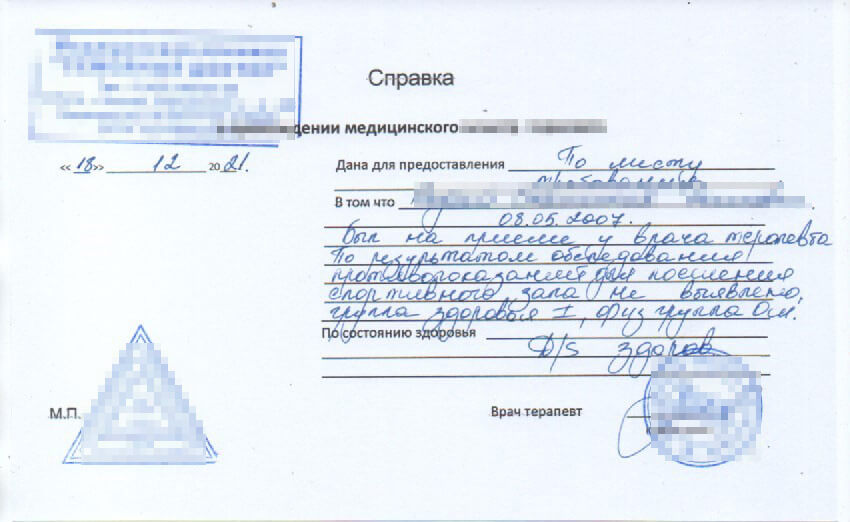 Справка
дении медицинского
«18» 12 2021.
Дана для предоставления По месту
требования
В том что
08.05.2007.
был на приеме у врача терапевта
По результатам обследования
противопоказаний для посещения
спортивного зала не выявлено,
группа здоровья I, физ группа Осн.
По состоянию здоровья
D/S здоров
М.П.
Врач терапевт